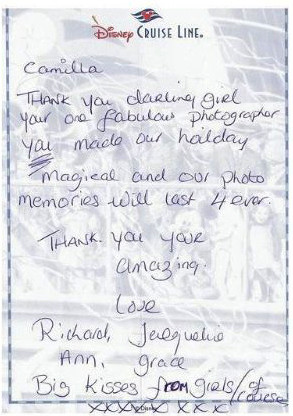 Disney CRUISE LINE®
Camilla
THANK You darling girl
your one fabulous photographer
you made our hoilday
magical and our photo
memories will last 4 ever.
THANK. You your
amazing.
Love
Richard, Jacquelie
Ann, grace
Big kisses from girls/of course
xxxxx x x x